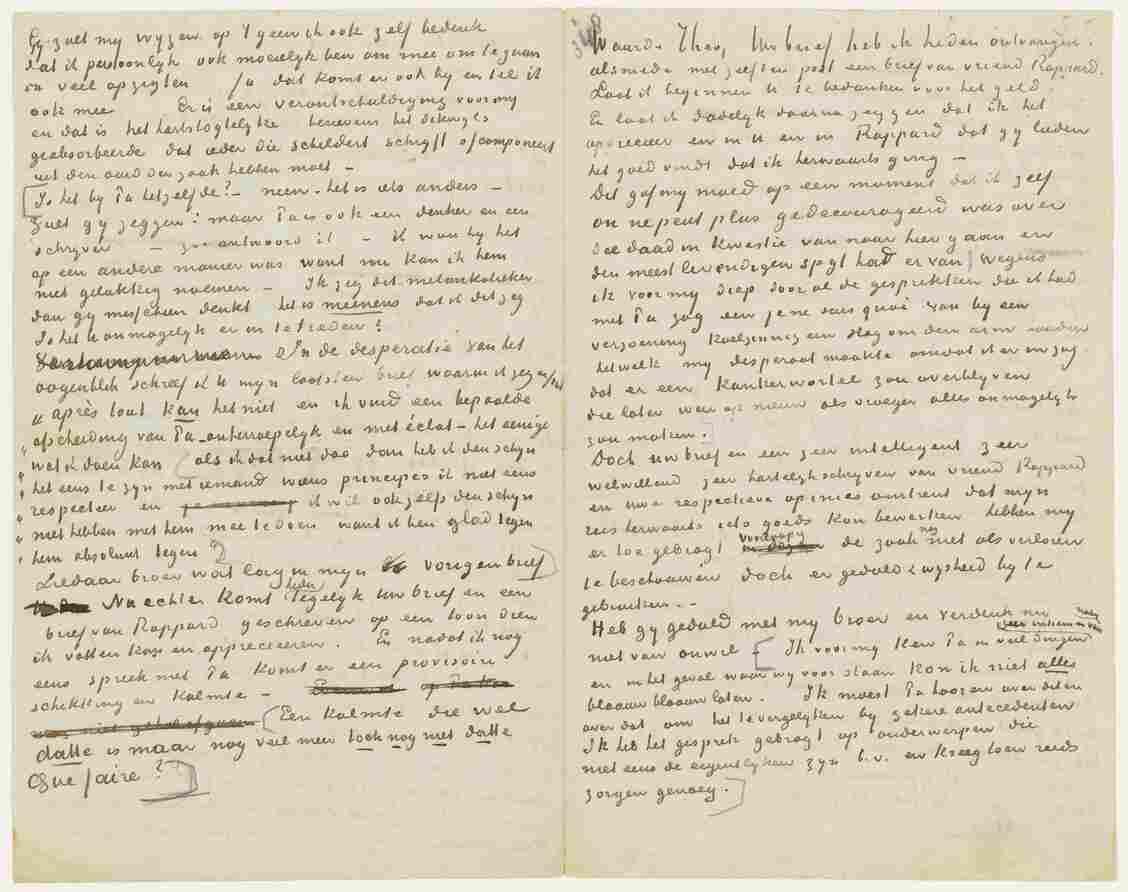 Gy zult my wyzen op 't geen ik ook zelf bedenk
dat ik persoonlyk ook moeielyk ben om mee om te gaan
en veel op zigten Ja dat komt er ook by en tel ik
ook mee Er is een verontschuldiging voor my
en dat is het hartstogtelyke benevens het
geabsorbeerde dat ieder die schildert schryft of componeert
uit den aard der zaak hebben moet –
Is het by Pa hetzelfde? – neen – het is iets anders –
Zult gy zeggen: maar Pa is ook een denker en een
schryver – zoo antwoord ik – ik wou hy het
op een andere manier was want nu kan ik hem
niet gelukkig noemen – Ik zeg dit melankolieker
dan gy misschien denkt het is meenens dat ik dit zeg
Is het U onmogelyk er in te treden?
In de desperatie van het
oogenblik schreef ik U myn laatsten brief waarin ik zeg
„ après tout kan het niet en ik vind een bepaalde
„ afscheiding van Pa – onherroepelyk en met éclat – het eenige
„ wat ik doen kan (als ik dat niet doe dan heb ik den schyn
„ het eens te zyn met iemand wiens principes ik niet eens
„ respecteer en ik wil ook zelfs den schyn
„ niet hebben met hem mee te doen want ik ben glad tegen
„ hem absoluut tegen")
Ziedaar broer wat lag in myn vorigen brief
Nu echter komt heden tegelyk Uw brief en een
brief van Rappard geschreven op een toon dien
ik vatten kan en apprecieeren. En nadat ik nog
eens spreek met Pa komt er een provisoire
schikking en kalmte –
(Een kalmte die wel
datte is maar nog veel meer toch nog niet datte
Que faire?
Waarde Theo, Uw brief heb ik heden ontvangen,
alsmede met zelfden post een brief van vriend Rappard.
Laat ik beginnen U te bedanken voor het geld.
En laat ik dadelyk daarna zeggen dat ik het
apprecieer en in U en in Rappard dat gy lieden
het goed vindt dat ik herwaarts ging –
Dit gaf my moed op een moment dat ik zelf
on ne peut plus gedecourageerd was over
die daad in kwestie van naar hier gaan en
den meest levendigen spyt had er van wegens
ik voor my diep door al de gesprekken die ik had
met Pa zag een je ne sais quoi van by een
verzoening koelzinnig een slag om den arm houden
hetwelk my desperaat maakte omdat ik er in zag
dat er een kankerwortel zou overblyven
die later weer op nieuw als vroeger alles onmogelyk
zou maken.
Doch Uw brief en een zeer intelligent zeer
welwillend zeer hartelyk schryven van vriend Rappard
en uwe respectieve opinies omtrent dat myn
reis herwaarts iets goeds kon bewerken hebben my
er toe gebragt voorloopig de zaak nog niet als verloren
te beschouwen doch er geduld & wysheid by te
gebruiken. –
Heb gy geduld met my broer en verdenk my
niet van onwil Ik voor my ken Pa in veel dingen
en in het geval waar wy voor staan kon ik niet alles
blaauw blaauw laten. Ik moest Pa hooren over dit en
over dat om het te vergelyken by zekere antecedenten
Ik heb het gesprek gebragt op onderwerpen die
niet eens de eigentlyken zyn b.v. en kreeg toen reeds
zorgen genoeg.